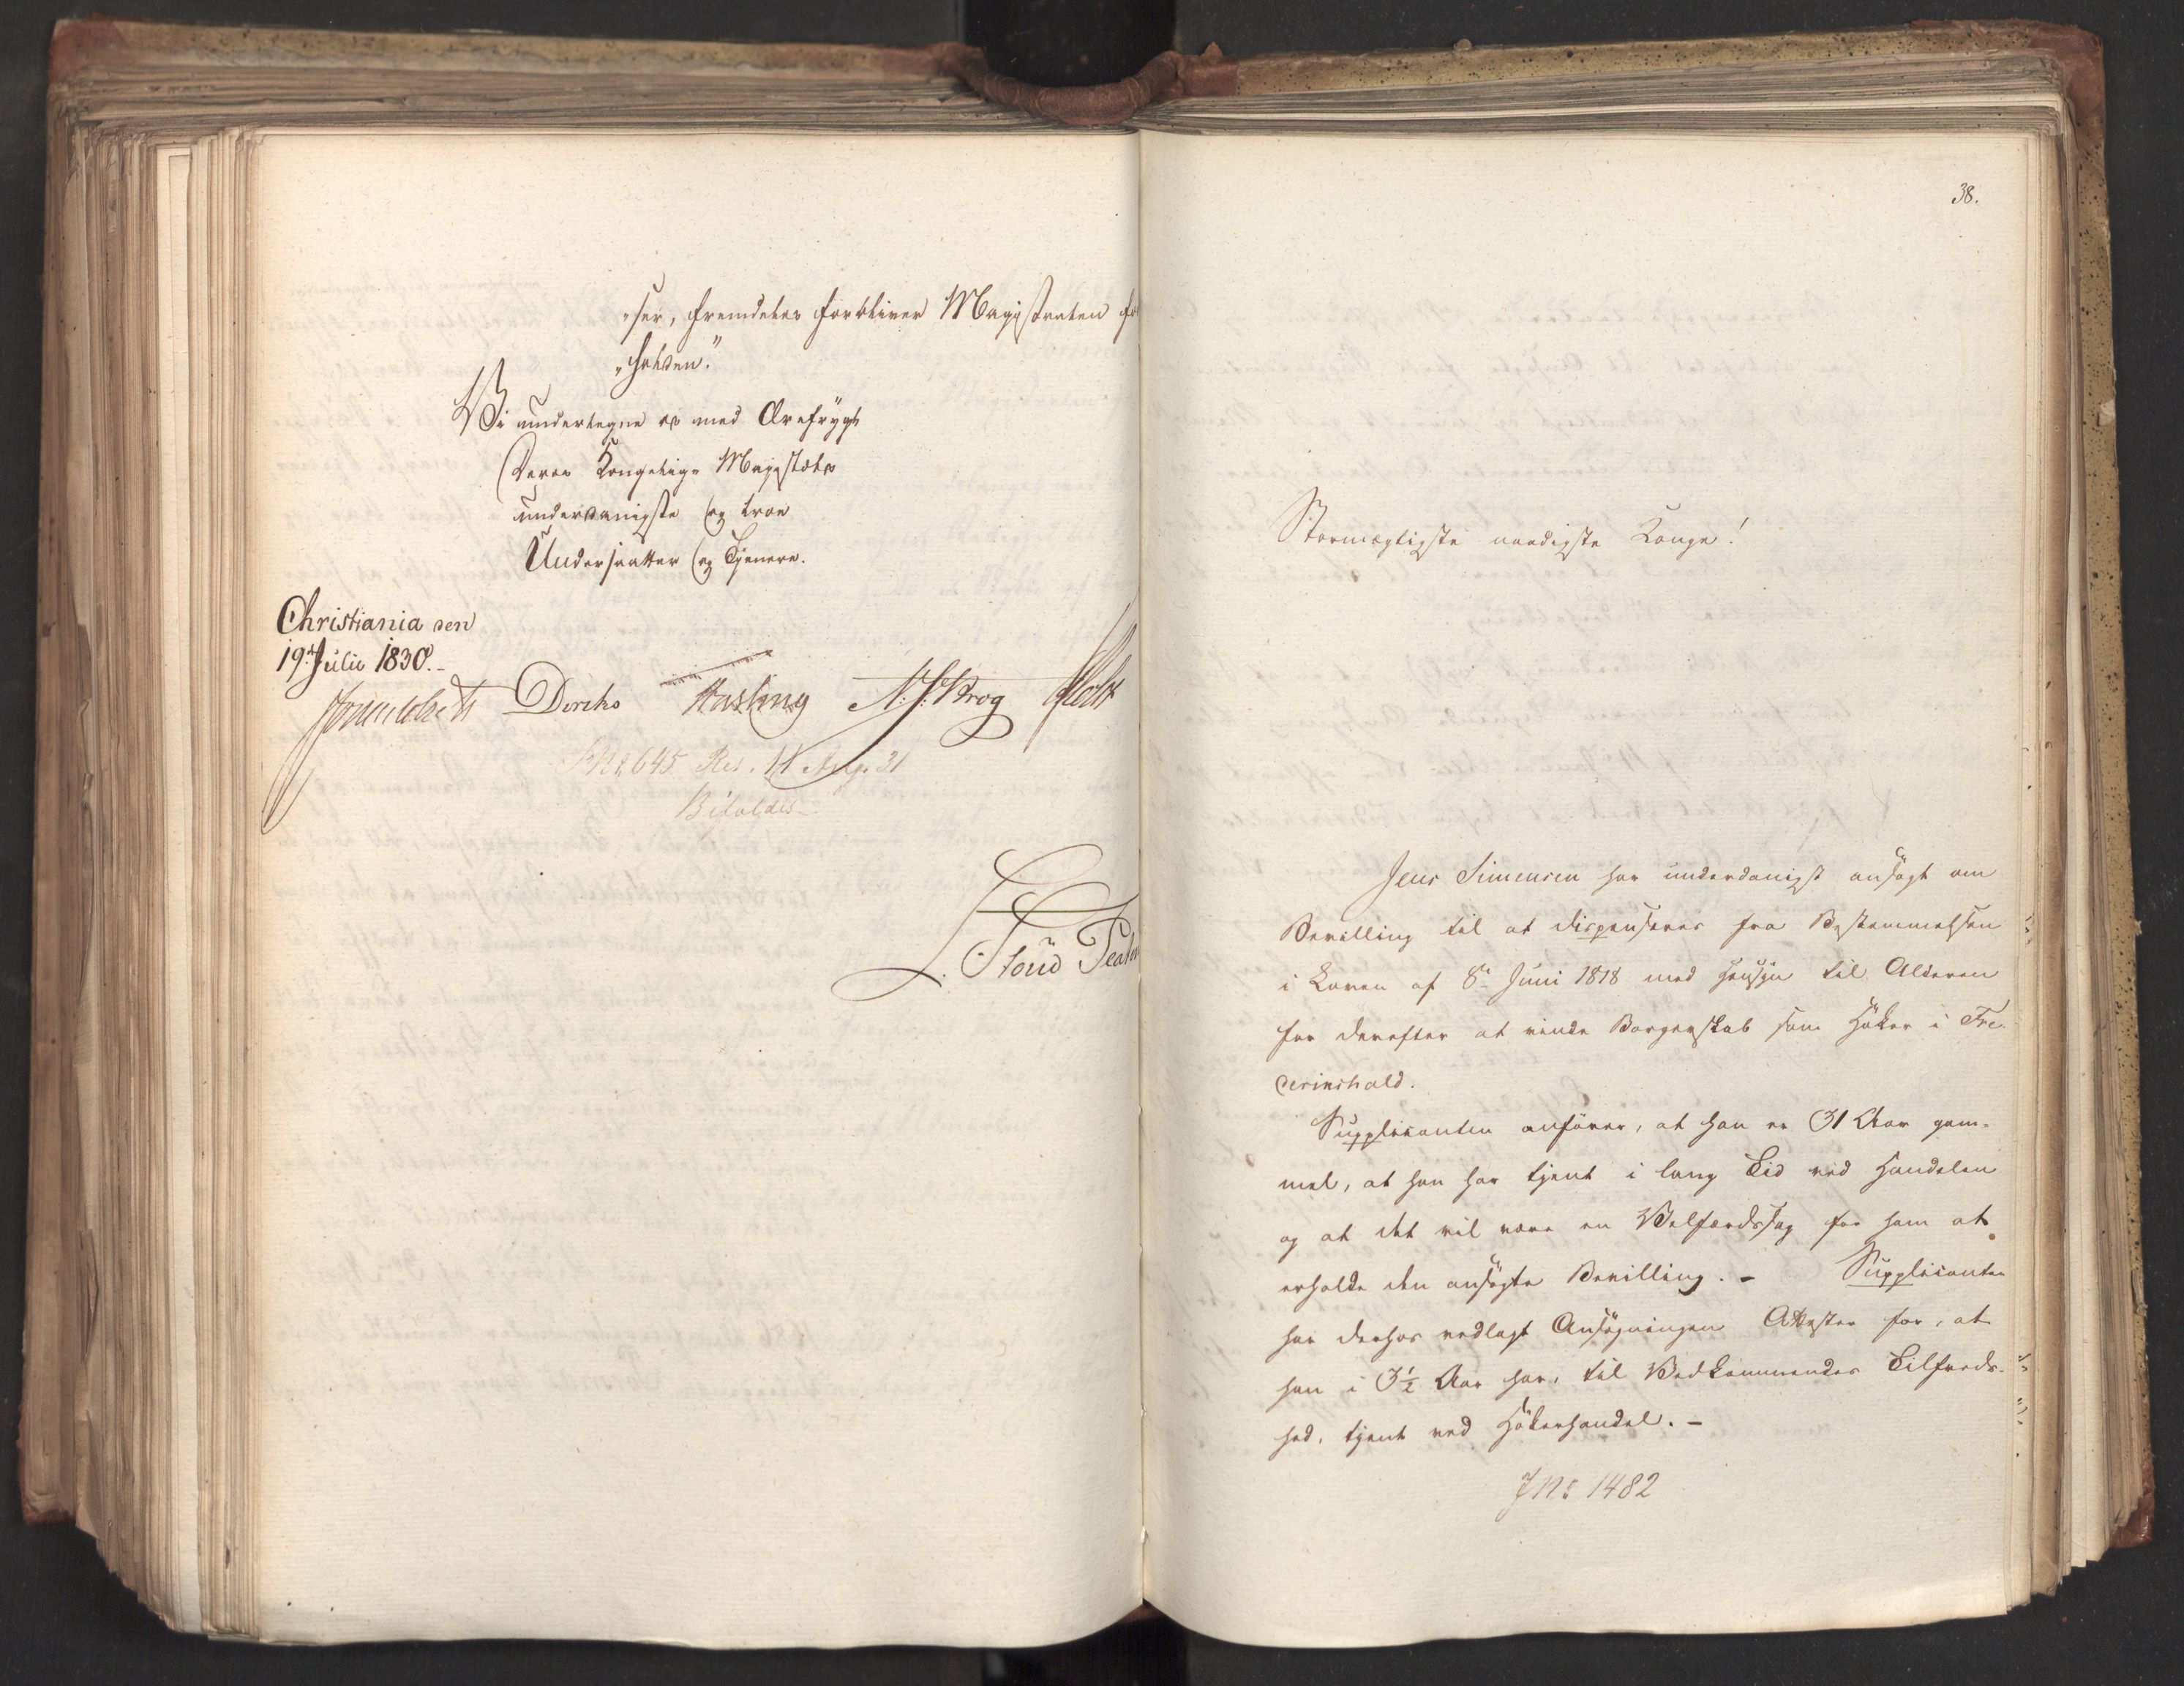 „ser, fremdeles forbliver Magistraten
„holden."
Vi undertegne os med Ærefrygt
Deres Kongelige Majestæts
underdanigste og troe
Undersaatter og Tjenere.
Christiania den
19de Julii 1830.-
Diriks Hasling N. J. Krog Holst
J No 645 Res. 11 Aug. 31
Bifaldes
38.
Stormægtigste naadigste Konge!
Jens Simensen har underdanigst ansøgt om
Bevilling til at dispenseres fra Bestemmelsen
i Loven af 8de Juni 1818 med Hensyn til Alderen
for derefter at vinde Borgerskab som Høker i Fre-
derikshald.
Supplicanten anfører, at han er 31 Aar gam-
mel, at han har tjent i lang Tid ved Handelen
og at det vil være en Velfærdssag for ham at
erholde den ansøgte Bevilling. - Supplicanten
har derhos vedlagt Ansøgningen Attester for, at
han i 3½ Aar har, til Vedkommendes Tilfreds-
hed, tjent ved Høkerhandel. -
J No 1482